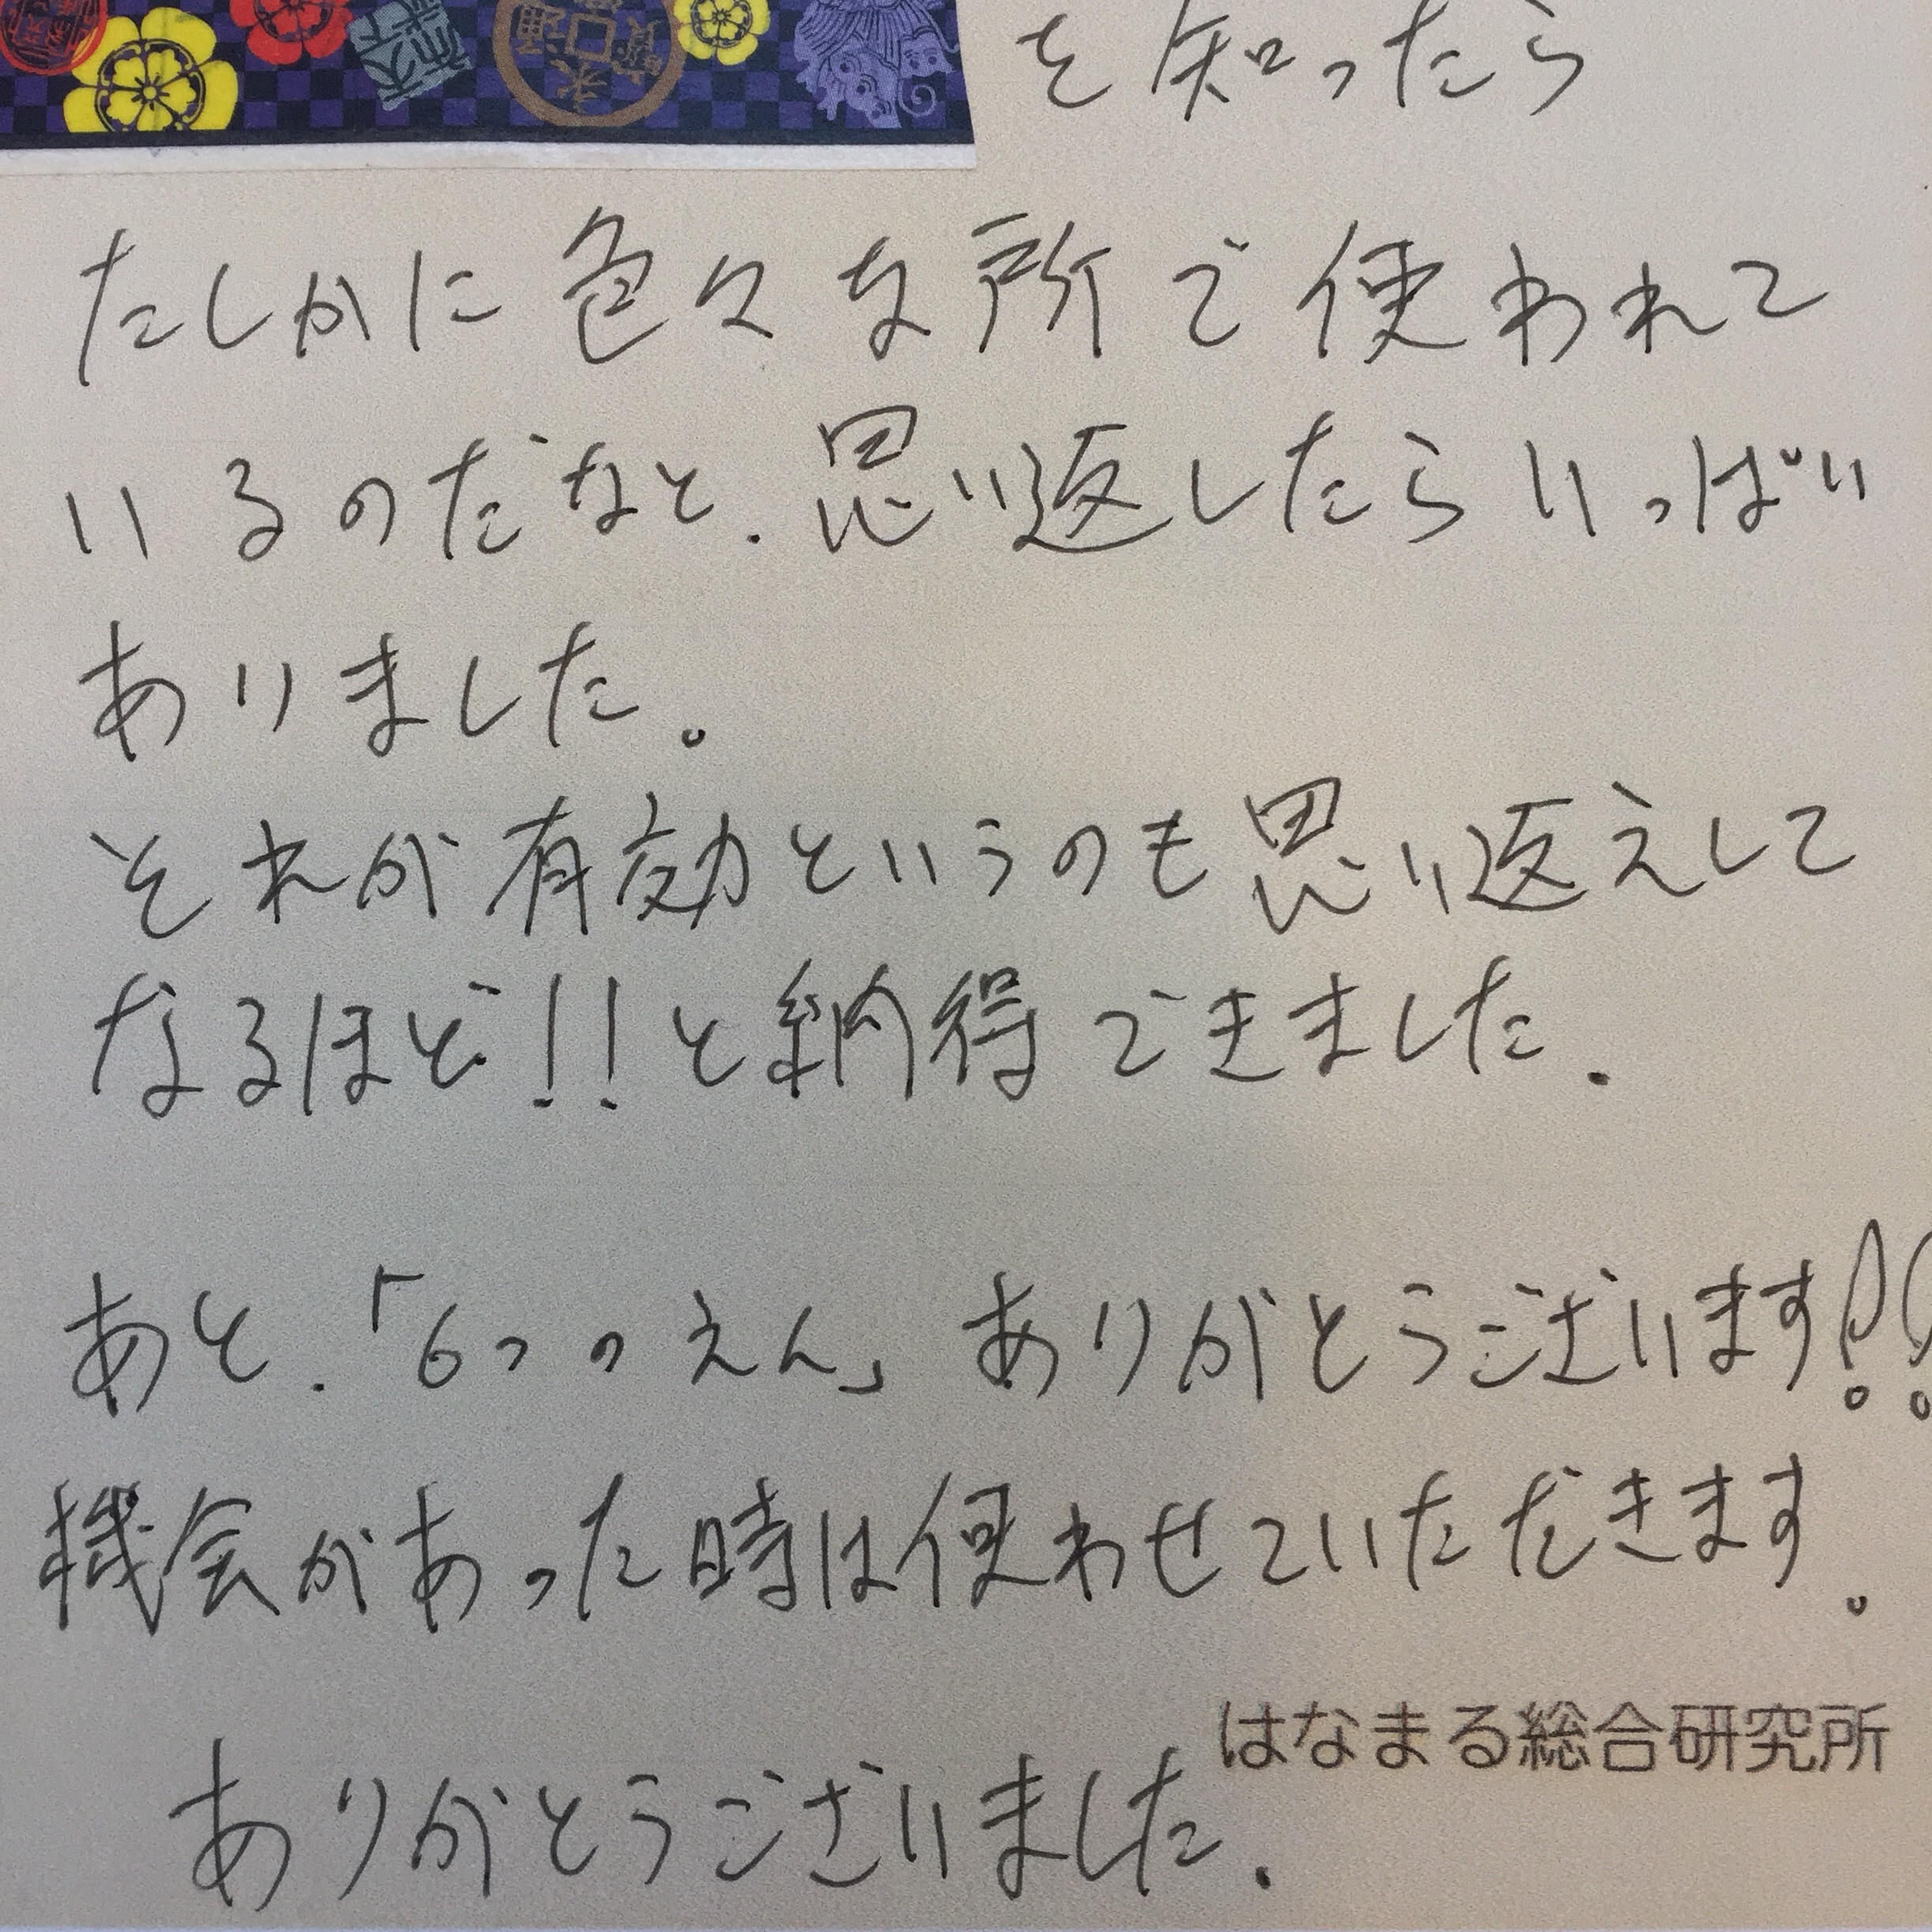 を知ったら
たしかに色々な所で使われて
いるのだなと、思い返したらいっぱい
ありました。
それが有効というのも思い返えして
なるほど!!と納得できました.
あと.「6つのえん」ありがとうございます!!
機会があった時は使わせていただきます。
はなまる総合研究所
ありがとうございました.